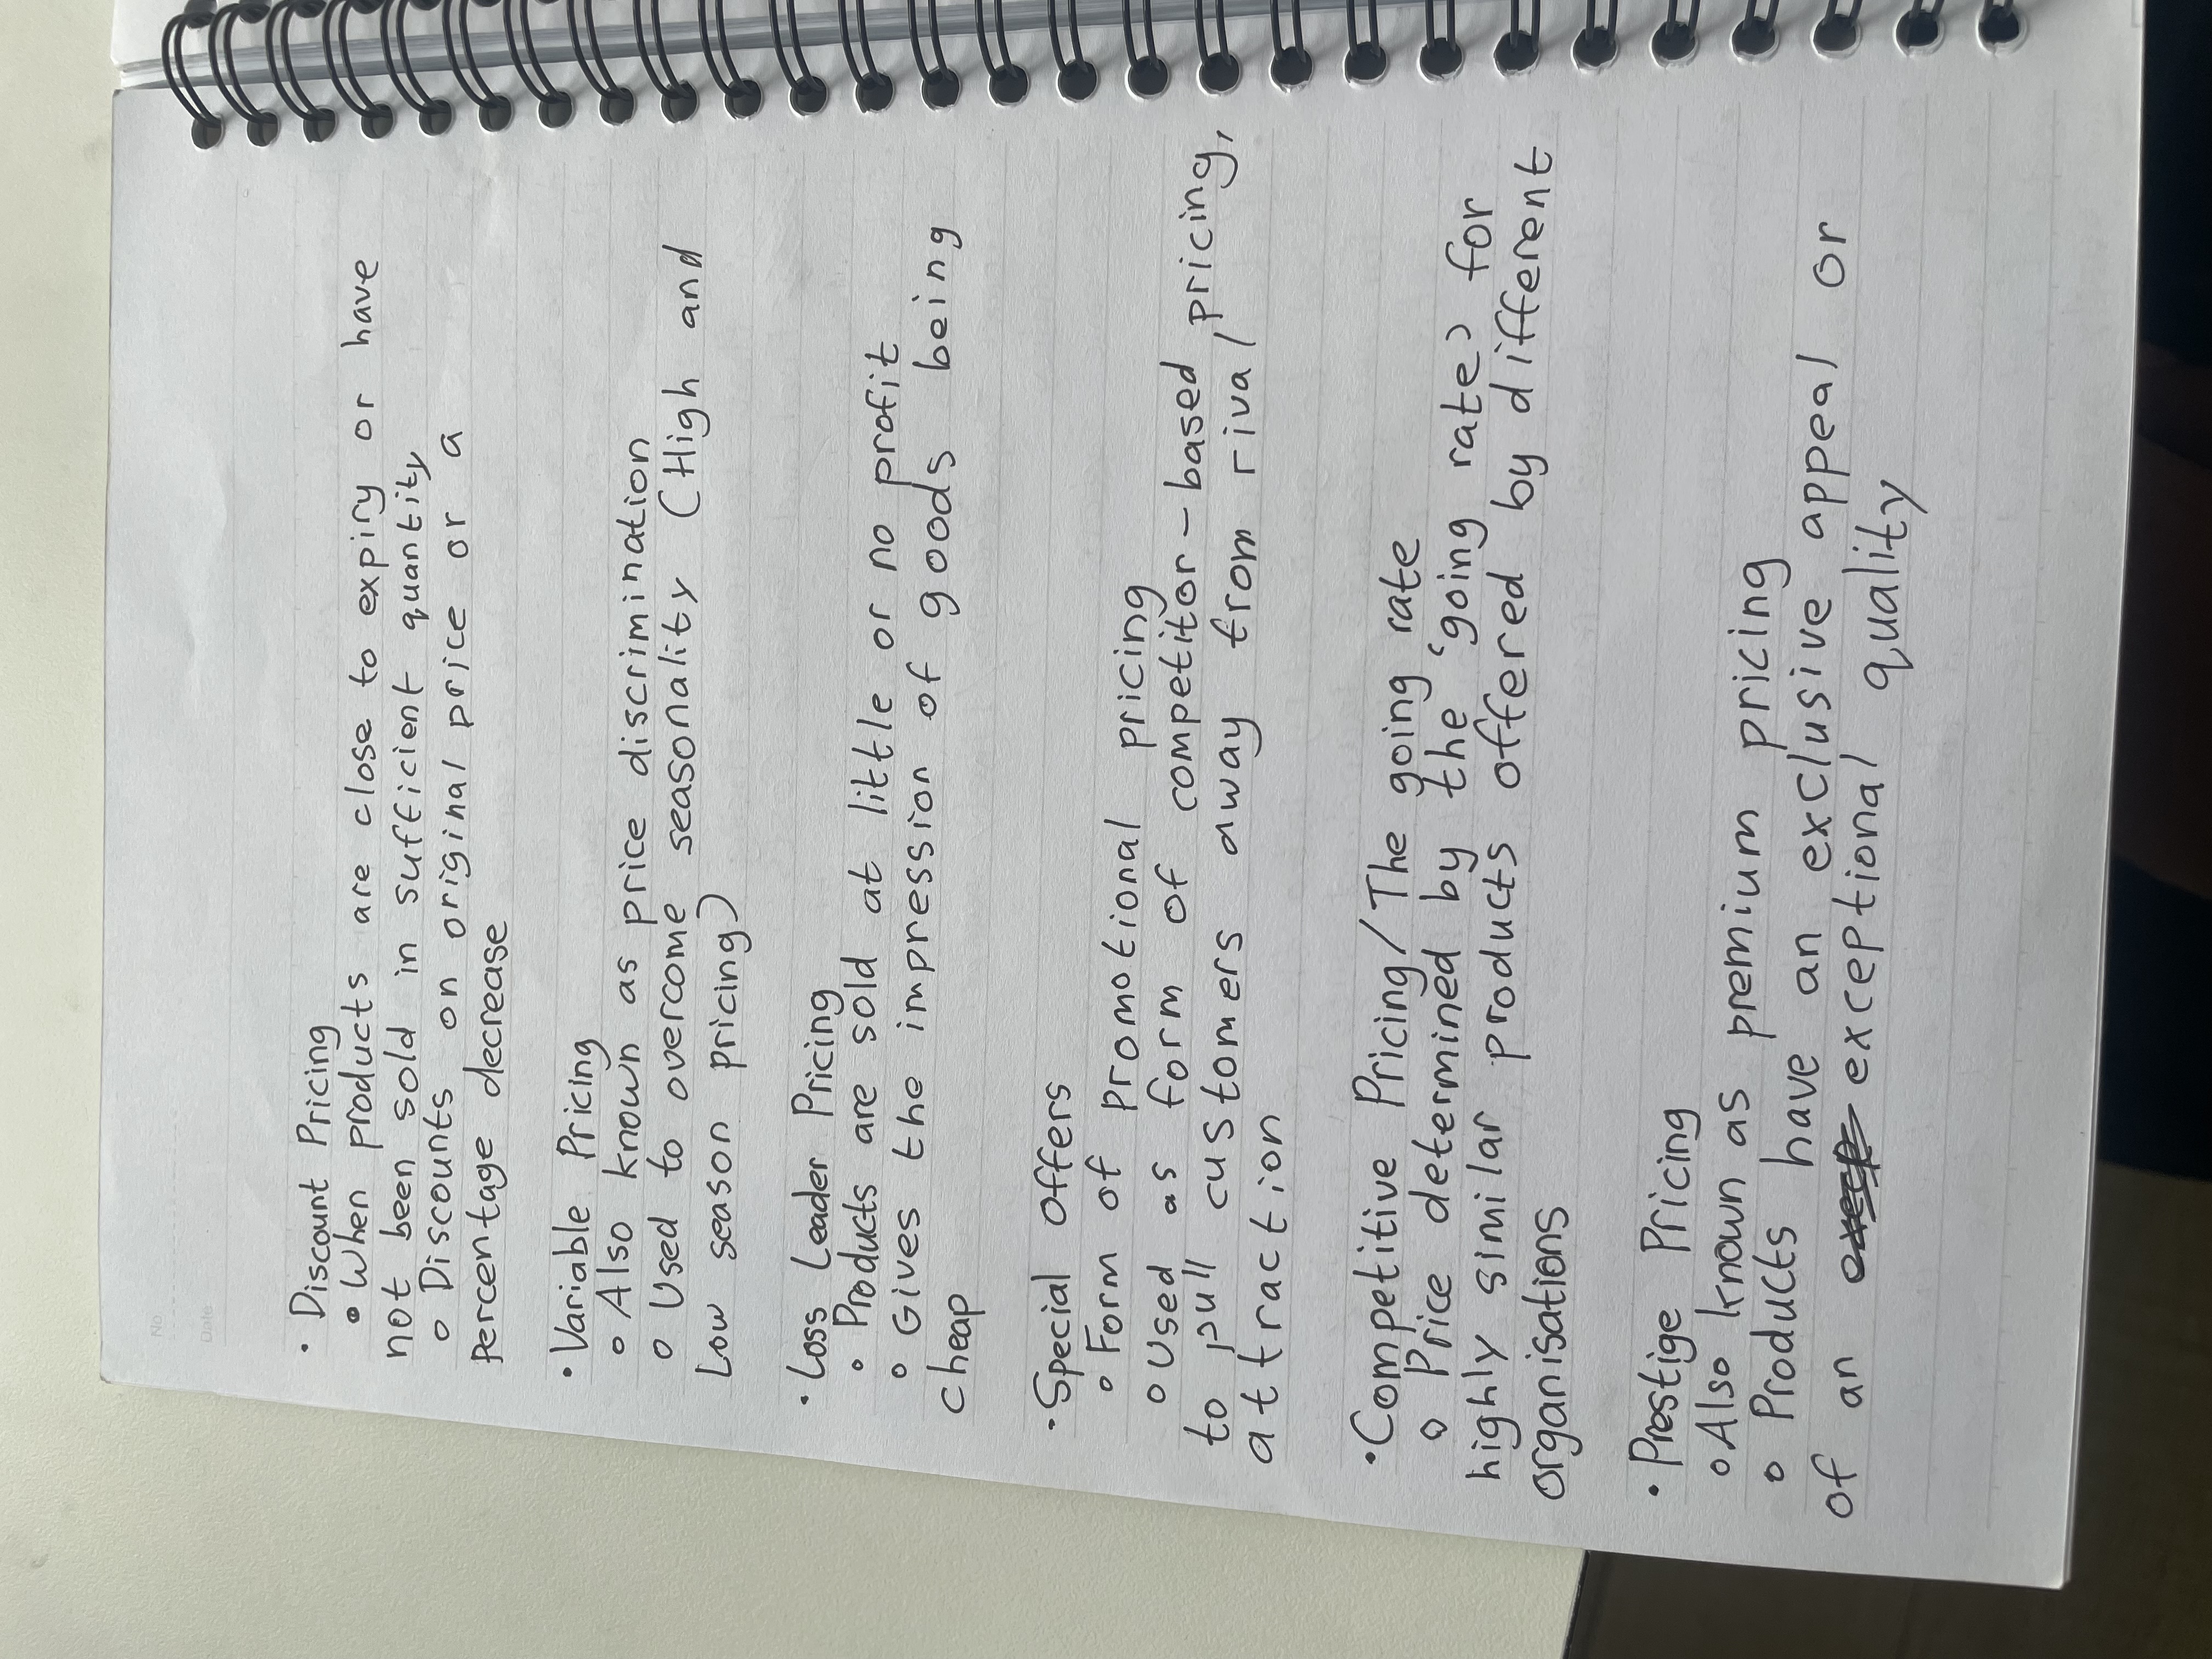 No
Date
• Discount Pricing
• When products are close to expiry or have
not been sold in sufficient quantity
○ Discounts on original price or a
percentage decrease
• Variable Pricing
○ Also known as price discrimination
○ Used to overcome seasonality (High and
Low season pricing)
• Loss Leader Pricing
○ Products are sold at little or no profit
○ Gives the impression of goods being
cheap
• Special Offers
○ Form of promotional pricing
○ Used as form of competitor-based pricing,
to pull customers away from rival
attraction
• Competitive Pricing/The going rate
○ Price determined by the 'going rate' for
highly similar products offered by different
organisations
• Prestige Pricing
○ Also known as premium pricing
○ Products have an exclusive appeal or
of an exceptional quality